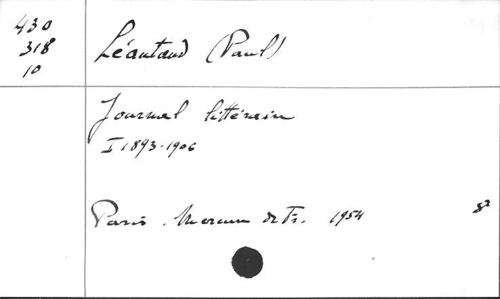 430
318
10
Léautaud (Paul)
Journal littéraire
I 1893-1906
Paris. Mercure de Fr. 1954 8°